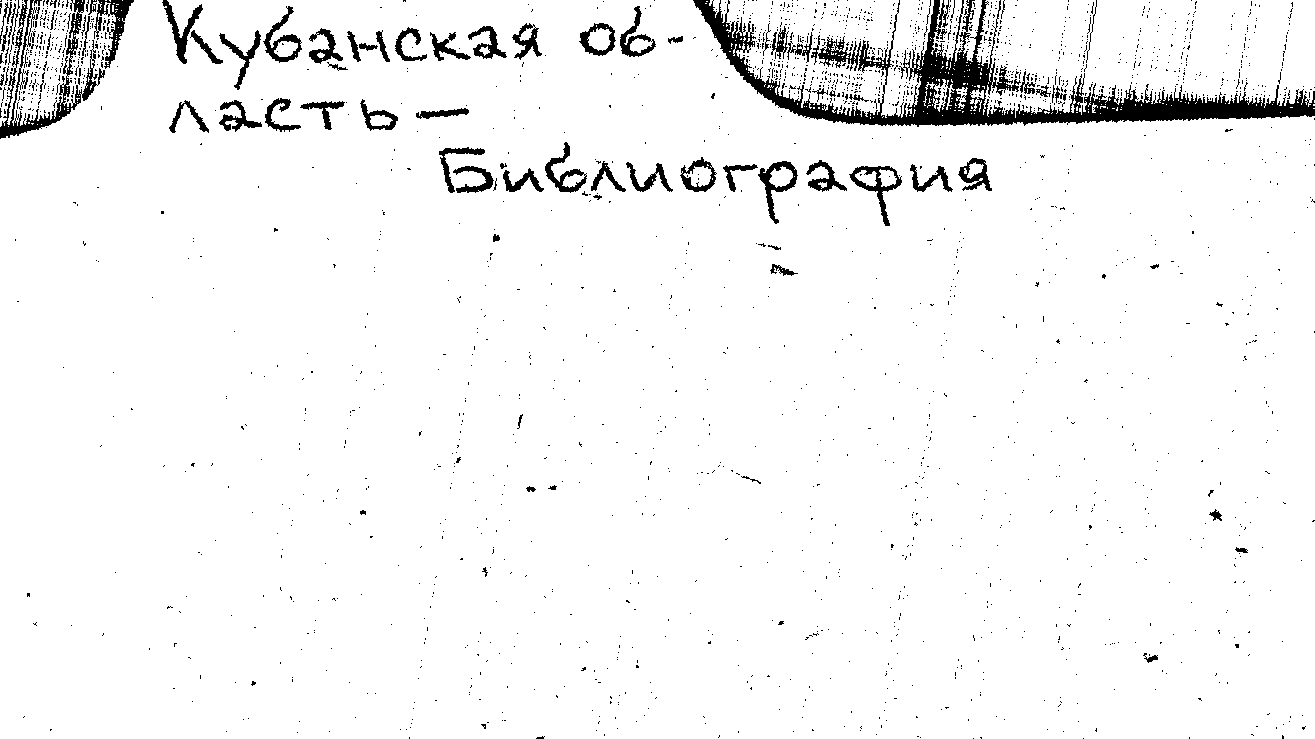 Кубанская об-
ласть —
Библиография